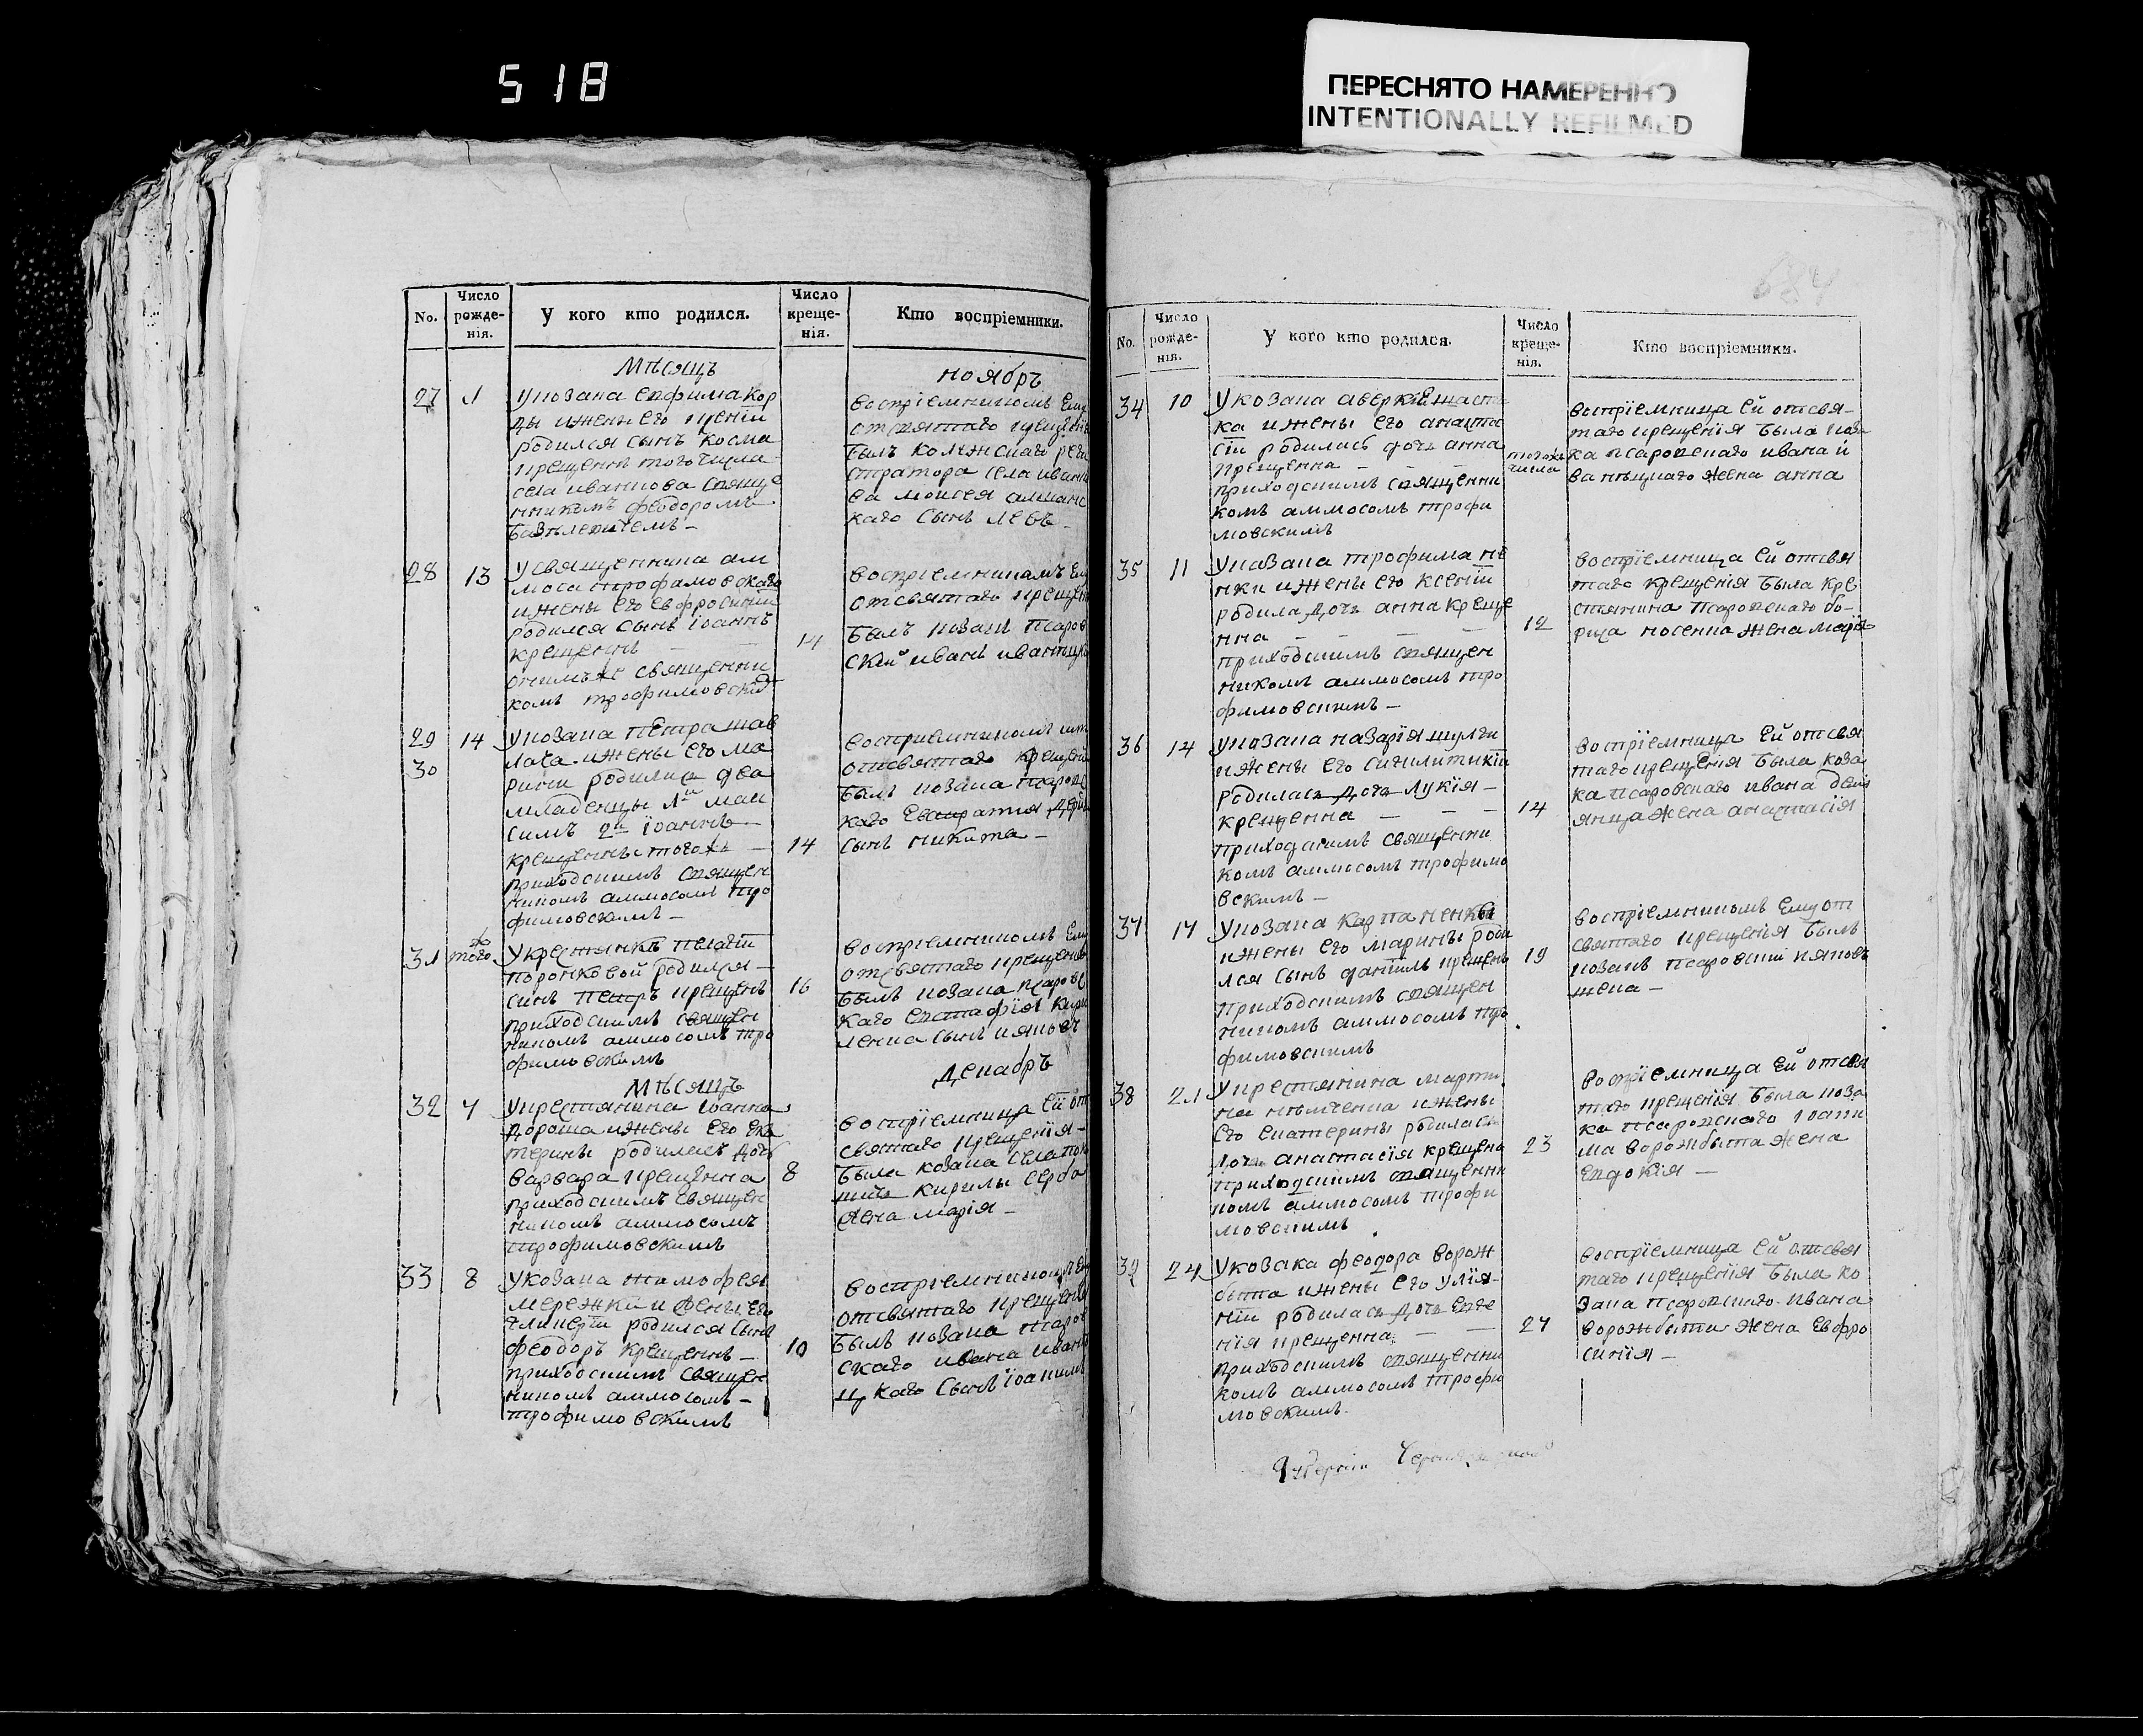 518
ПЕРЕСНЯТО НАМЕРЕННО
INTENTIONALLY REFILMED
684
No.
Число рожде-нія.
У кого кто родился.
Число креще-нія.
Кто воспріемники.
Мѣсяцъ
ноябрь
27 1
Укозака евфима кор
ды ижены его
родился сынъ косма
крещенъ того числа
села иванкова свяще
нникомъ феодоромъ
воспріемникомъ ему
отсвятаго крещенія
былъ колежскаго реги
стратора села иванко
ва моисея
каго сынъ левъ
28 13
Усвященника ам
моса трофимовскаго
ижены его евфросиніи
родился сынъ іоаннъ
крещеннъ
онимже священни
комъ трофимовским
14
воспріемникомъ ему
отсвятаго крещен
былъ козакъ псаров
скій иванъ иваницк
29 14
30
Укозака петра шав
лача ижены его ма
рины родились два
младенцы 1й мак
симъ 2й іоаннъ
крещенны тогожъ
приходскимъ священ
никомъ аммосомъ тро
фимовскимъ
14
воспріемникомъ имъ
отсвятаго крещені
былъ козака псаровс
каго
сынъ никита
31 тогожъ
Укрестянки пелагіи
поронковой родился
синъ петръ крещенъ
приходскимъ священ
никомъ аммосомъ тро
фимовскимъ
16
воспріемникомъ ему
отсвятаго крещенія
былъ козака псаровс
каго евстафія кири
ленка сынъ яковъ
Мѣсяцъ
Декабрь
32 7
Укрестянина іоанна
дороша ижены его ека
терины родилась дочъ
варвара крещенна
приходскимъ священ
никомъ аммосомъ
трофимовскимъ
8
воспріемница ей от
святаго крещенія
была козака села
кирилы
жена марія
33 8
Укозака тимофея
мережки и жены его
гликеріи родился сынъ
феодоръ крещеннъ
приходскимъ священ
никомъ аммосомъ
трофимовскимъ
10
воспріемникомъ ему
отсвятаго крещенія
былъ козака псаров
скаго ивана иван
цкаго сынъ іоакимъ
No.
Число рожде-нія.
У кого кто родился.
Число креще-нія.
Кто воспріемники.
34 10
Укозака аверкія
ка ижены его анаста
сіи родилась дочъ анна
крещенна
приходскимъ священни
комъ аммосомъ трофи
мовскимъ
тогожъ числа
воспріемница ей отсвя
таго крещенія была коза
ка псаровскаго ивана и
ваницкаго жена анна
35 11
Укозака трофима не
нки ижены его ксеніи
родила дочъ анна креще
нна
приходскимъ священ
никомъ аммосомъ тро
фимовскимъ
12
воспріемница ей отсвя
таго крещенія была кре
стянина псаровскаго бо
риса носенка жена марія
36 14
Укозака назарія шулги
ижены его синклитикіи
родилась дочъ лукія
крещенна
приходскимъ священни
комъ аммосомъ трофимо
вскимъ
14
воспріемница ей отсвя
таго крещенія была коза
ка псаровскаго ивана дем
янца жена анастасія
37 17
Укозака карпа ненки
ижены его марины роди
лся сынъ даніилъ крещенъ
приходскимъ священ
никомъ аммосомъ тро
фимовскимъ
19
воспріемникомъ ему от
святаго крещенія былъ
козакъ псаровскій яковъ
38 21
Укрестянина марти
на ижены
его екатерины родилась
дочь анастасія крещена
приходскимъ священни
комъ аммосомъ трофи
мовскимъ
23
воспріемница ей отсвя
таго крещенія была коза
ка псаровскаго іоаки
ма ворожбыта жена
евдокія
39 24
Укозака феодора ворож
быта ижены его уліа
ніи родилась дочъ евге
нія крещенна
приходскимъ священни
комъ аммосомъ трофи
мовскимъ
27
воспріемница ей отсвя
таго крещенія была ко
зака псаровскаго ивана
ворожбыта жена евфро
синія